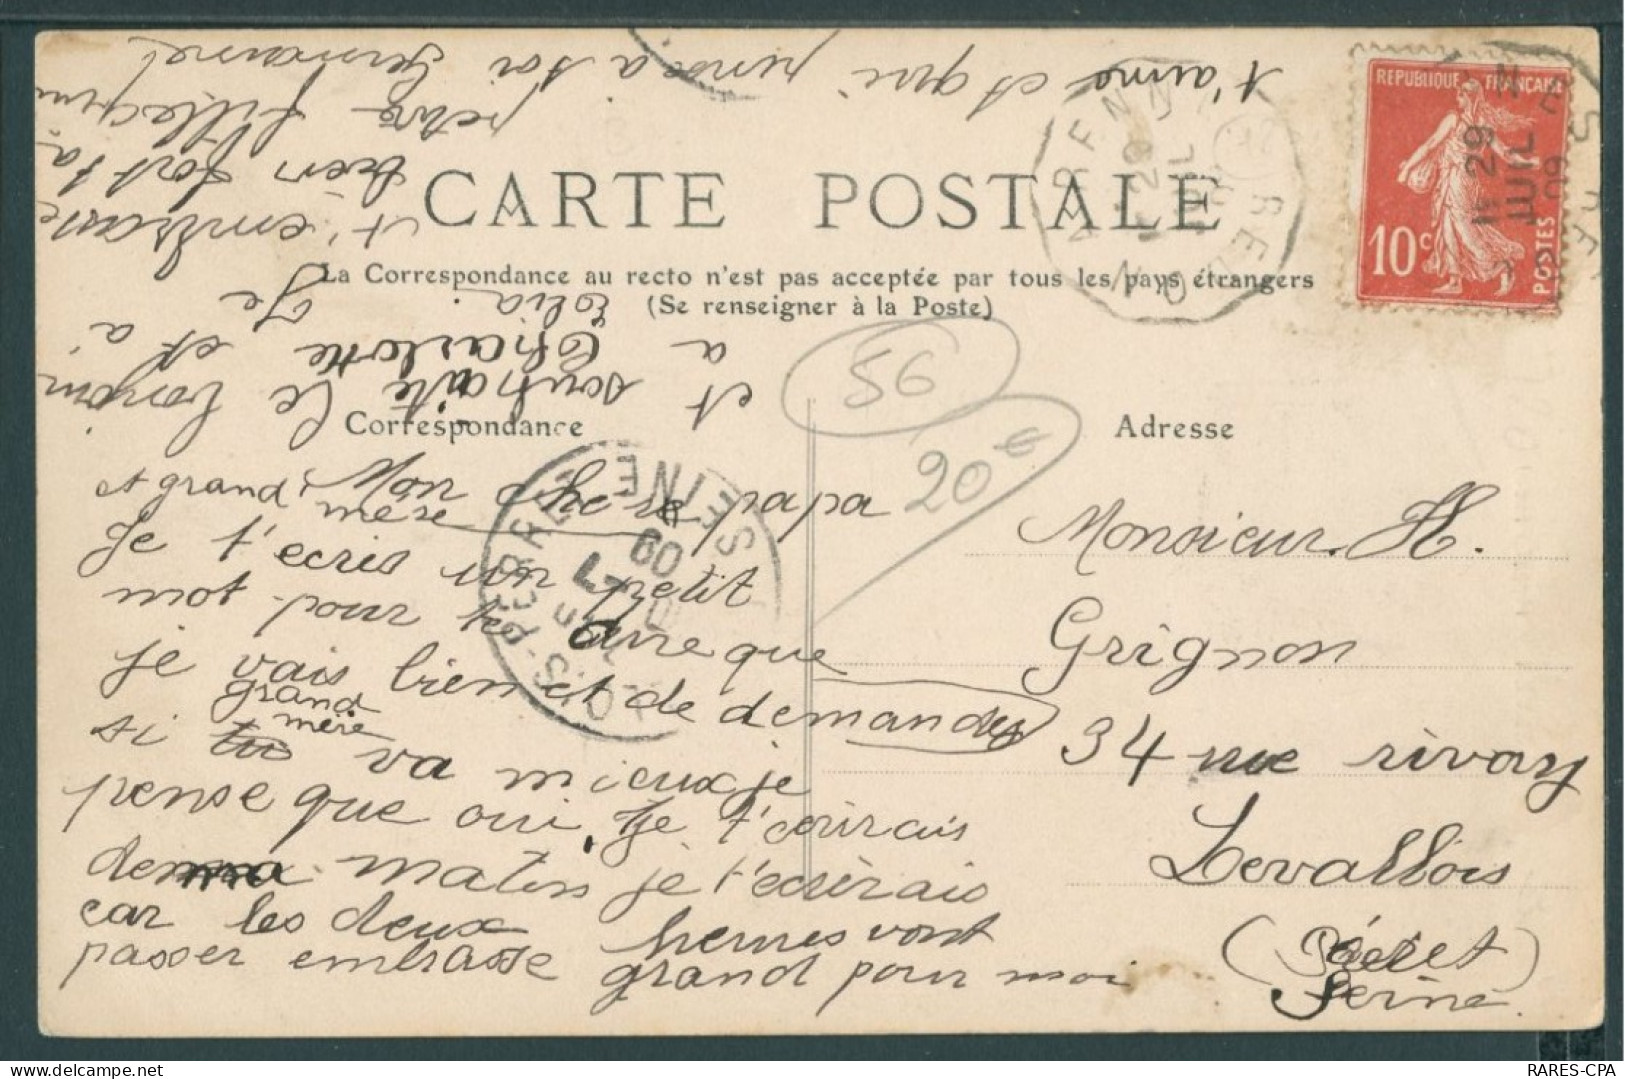 REPUBLIQUE FRANÇAISE
10c
POSTES
CARTE POSTALE
La Correspondance au recto n'est pas acceptée par tous les pays étrangers
(Se renseigner à la Poste)
56
20€
Correspondance
Adresse
Mon chere papa
et grand mere
Je t'ecris un petit
mot pour te dire que
je vais bien et de demander
si grand mère va mieux je
pense que oui, Je t'écrirais
matin je t'ecrirais
car les deux heures vont
passer embrasse grand pour moi
et souhaite le bonjour
a Charlotte et a
Celia. Je
t'embrasse
bien fort ta
petite fille qui
t'aime et qui pense a toi Germaine
Monsieur. H.
Grignon
34 rue rivay
Levallois
(Perret)
Seine
29 JUIL 09
SEINE
RARES-CPA